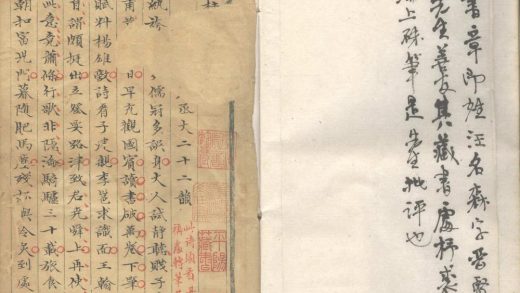 書章即姓汪名森字晉賢
先生善本其藏書處杼裘
上硃筆是先生批評也
丞丈二十二韻
儒冠多誤身丈人試靜聽賤子
甫昔 日早充觀國賓讀書破萬卷下筆
賦料楊雄敵詩看子建親李邕求識面王翰
甘謂頗挺出立登要路津致君堯舜上再使
此意竟蕭條行歌非隱淪騎驢三十載旅食
朝扣富兒門暮隨肥馬塵殘杯與冷炙到處